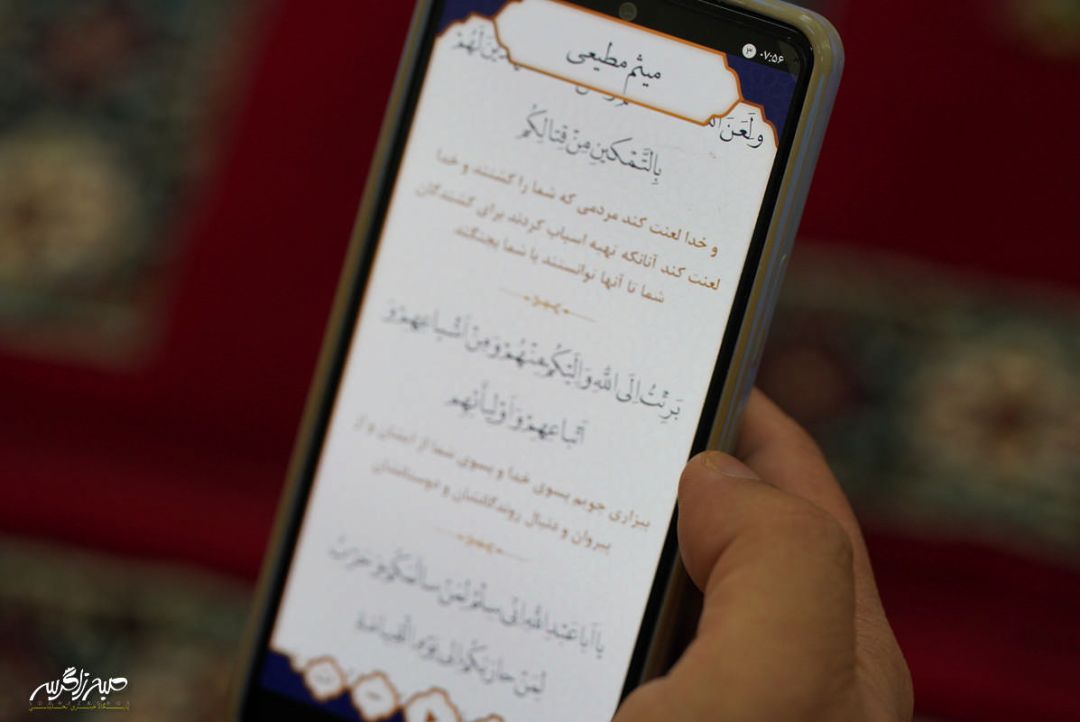 ۰۷:۵۶ ۳
میثم مطیعی
لَهُمْ
وَلَعَنَ
بِالتَّمْكينِ مِنْ قِتالِكُمْ
و خدا لعنت کند مردمی که شما را کشتند و خدا
لعنت کند آنانکه تهیه اسباب کردند برای کشندگان
شما تا آنها توانستند با شما بجنگند
بَرِئْتُ اِلَى اللهِ وَ اِلَيْكُمْ مِنْهُمْ وَ مِنْ اَشْياعِهِمْ وَ
اَتْباعِهِمْ وَ اَوْلِيائِهِم
بیزاری جویم بسوی خدا و بسوی شما از ایشان و از
پیروان و دنبال روندگانشان و دوستانشان
يا اَبا عَبْدِ اللهِ اِنّى سِلْمٌ لِمَنْ سالَمَكُمْ وَ حَرْبٌ
لِمَنْ حارَبَكُمْ اِلى يَوْمِ الْقِيامَةِ
صبح زاگرس